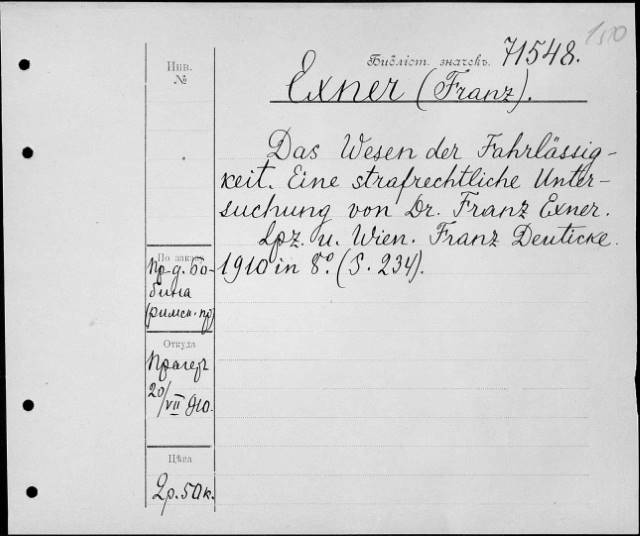 1510
Библіот. значекъ. 71548.
Инв.
№
Exner (Franz).
Das Wesen der Fahrlässig-
keit. Eine strafrechtliche Unter-
suchung von Dr. Franz Exner.
Lpz. u. Wien. Franz Deuticke.
1910 in 8º. (S. 234).
По заказу
пр. д. Бо-
бина
(римск. пр)
Откуда
Прагеръ
20/VII 910.
Цѣна
2 р. 50 к.